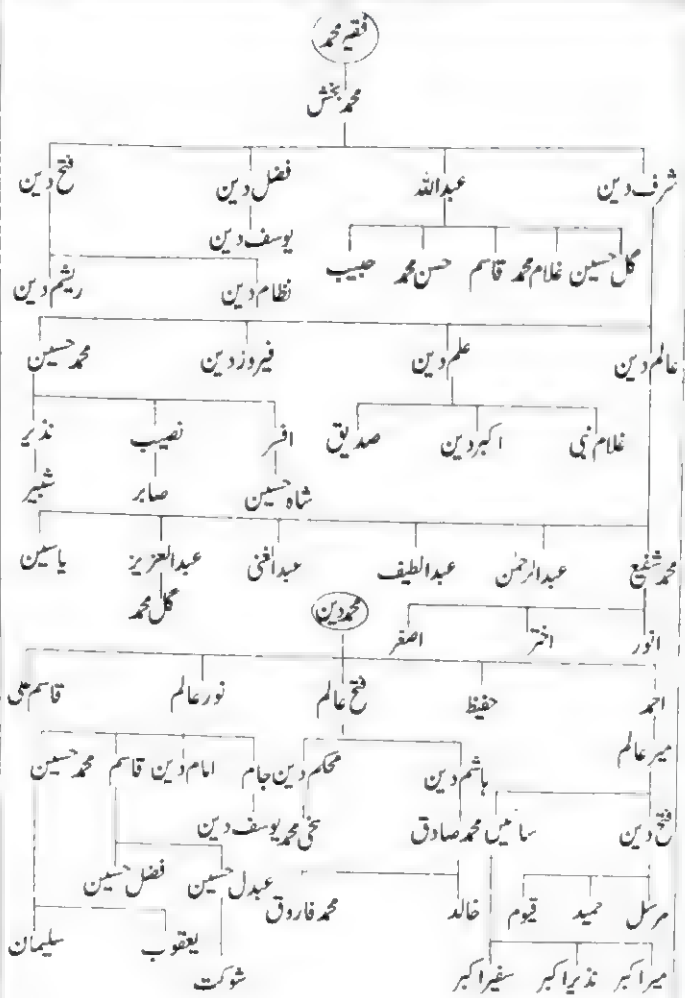 فقیر محمد
محمد بخش
شرف دین عبداللہ فضل دین فتح دین
یوسف دین
گل حسین غلام محمد قاسم حسن محمد حبیب
نظام دین ریشم دین
عالم دین علم دین فیروز دین محمد حسین
غلام نبی اکبر دین صدیق افسر نصیب نذیر
شاہ حسین صابر شبیر
محمد شفیع عبدالرحمٰن عبدالطیف عبدالغنی عبدالعزیز یاسین
گل محمد
محمد دین
انور اختر اصغر
احمد حفیظ فتح عالم نور عالم قاسم علی
میر عالم
ہاشم دین محکم دین جام امام دین قاسم محمد حسین
فتح دین سائیں محمد صادق سخی محمد یوسف دین
فضل حسین عبدل حسین
مرسل حمید قیوم خالد محمد فاروق
یعقوب سلیمان
میر اکبر نذیر اکبر سفیر اکبر شوکت